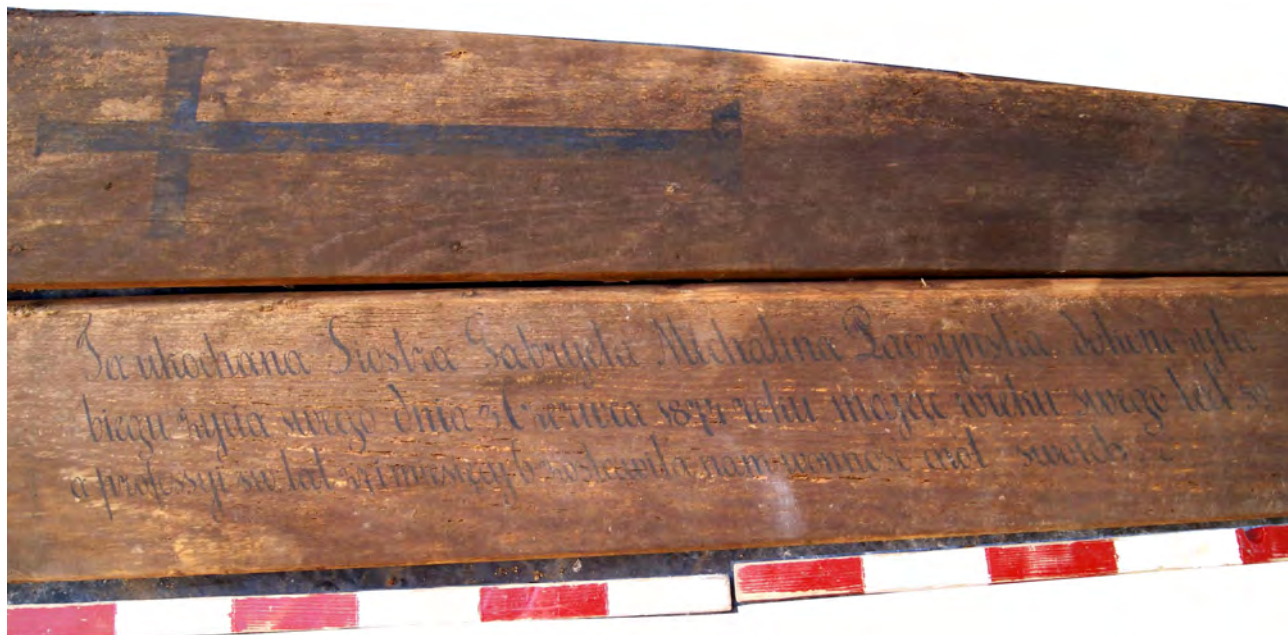 Ta ukochana Siostra Gabryela Michalina Raczyńska dokończyła
biegu życia swego dnia 3 Czerwca roku mając wieku swego lat
a professyi sw lat i miesięcy 6 zostawiła nam wonność cnót swoich